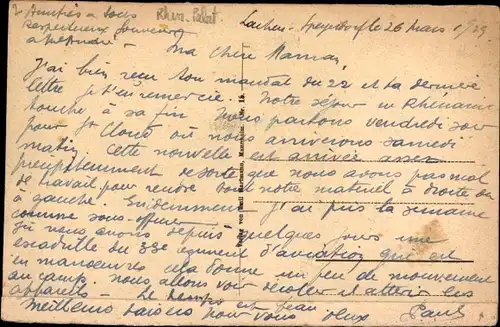 Rhein. Palat
Lachen-Speyerdorf le 26 mars 1929
Ma chère Maman,
J'ai bien reçu ton mandat du 22 et ta dernière
lettre je t'en remercie. Notre séjour en Rhénanie
touche à sa fin. Nous partons vendredi soir
pour St Cloud où nous arriverons samedi
matin. Cette nouvelle est arrivée assez
précipitemment de sorte que nous avons pas mal
de travail pour rendre tout notre matériel à droite
à gauche. Evidemment j'ai pris la semaine
comme sous-officier
Ici nous avons depuis quelques jours une
escadrille du 33e régiment d'aviation qui est
en manoeuvres cela donne un peu de mouvement
au camp. Nous allons voir décoller et atterrir les
appareils. Le temps est beau
Meilleurs baisers pour vous deux Paul